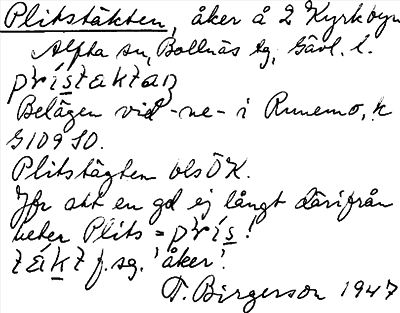 Plitstäkten, åker å 2 Kyrkbyn
Alfta sn, Bollnäs tg, Gävl. l.
Belägen vid -ne- i Runemo, k
G109 SO.
Plitstägten bls ÖK.
Jfr att en gd ej långt därifrån
heter Plits =
f. sg. 'åker'.
T. Birgerson 1947